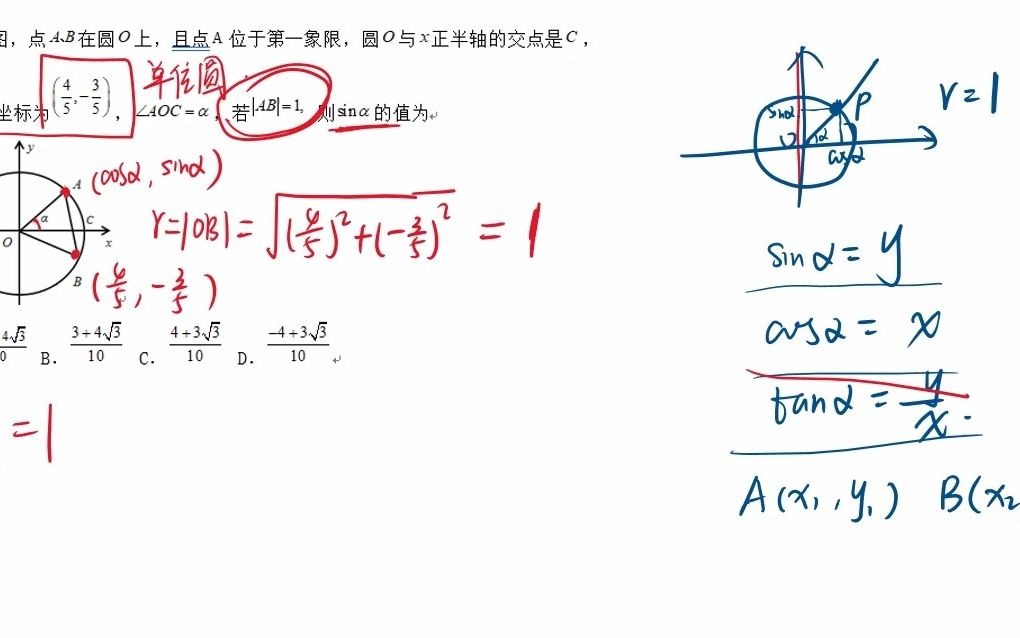 图，点 A、B 在圆 O 上，且点 A 位于第一象限，圆 O 与 x 正半轴的交点是 C，
单位圆
坐标为 (4/5, -3/5)，∠AOC = α，若 |AB| = 1, 则 sin α 的值为
y
A (cosα, sinα)
α C
O x
r = |OB| = √((4/5)² + (-3/5)²) = 1
B (4/5, -3/5)
4√3 B. (3+4√3)/10 C. (4+3√3)/10 D. (-4+3√3)/10
= 1
P r = 1
sinα
O α
cosα
sinα = y
cosα = x
tanα = y/x.
A(x₁, y₁) B(x₂